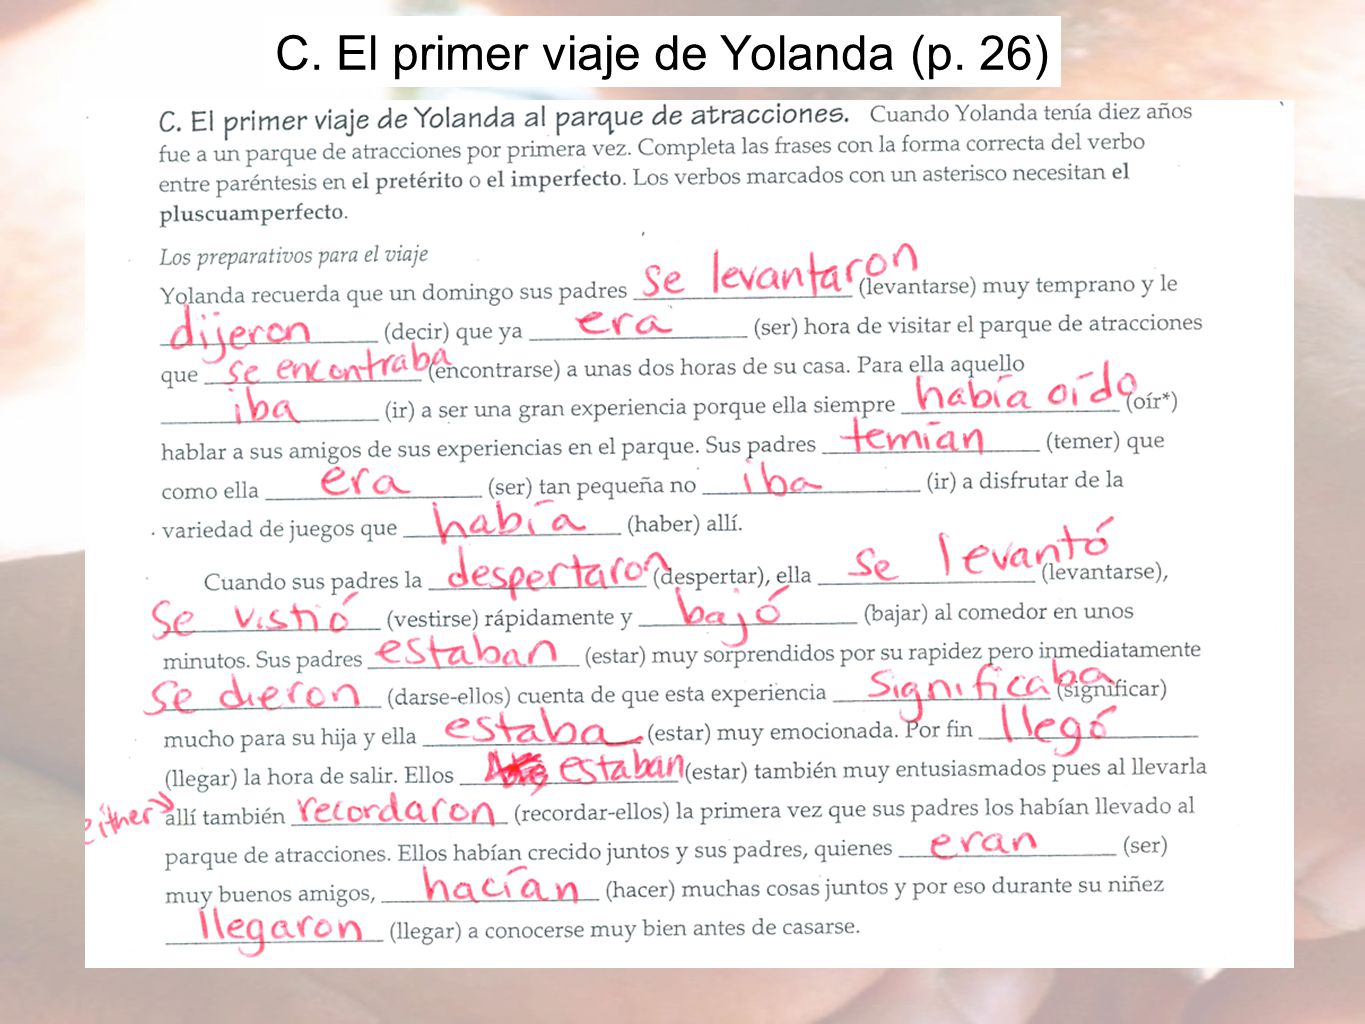 C. El primer viaje de Yolanda (p. 26)
C. El primer viaje de Yolanda al parque de atracciones. Cuando Yolanda tenía diez años
fue a un parque de atracciones por primera vez. Completa las frases con la forma correcta del verbo
entre paréntesis en el pretérito o el imperfecto. Los verbos marcados con un asterisco necesitan el
pluscuamperfecto.
Los preparativos para el viaje
Yolanda recuerda que un domingo sus padres se levantaron (levantarse) muy temprano y le
dijeron (decir) que ya era (ser) hora de visitar el parque de atracciones
que se encontraba (encontrarse) a unas dos horas de su casa. Para ella aquello
iba (ir) a ser una gran experiencia porque ella siempre había oído (oír*)
hablar a sus amigos de sus experiencias en el parque. Sus padres temían (temer) que
como ella era (ser) tan pequeña no iba (ir) a disfrutar de la
variedad de juegos que había (haber) allí.
Cuando sus padres la despertaron (despertar), ella se levantó (levantarse),
se vistió (vestirse) rápidamente y bajó (bajar) al comedor en unos
minutos. Sus padres estaban (estar) muy sorprendidos por su rapidez pero inmediatamente
se dieron (darse-ellos) cuenta de que esta experiencia significaba (significar)
mucho para su hija y ella estaba (estar) muy emocionada. Por fin llegó
(llegar) la hora de salir. Ellos estaban (estar) también muy entusiasmados pues al llevarla
either → allí también recordaron (recordar-ellos) la primera vez que sus padres los habían llevado al
parque de atracciones. Ellos habían crecido juntos y sus padres, quienes eran (ser)
muy buenos amigos, hacían (hacer) muchas cosas juntos y por eso durante su niñez
llegaron (llegar) a conocerse muy bien antes de casarse.